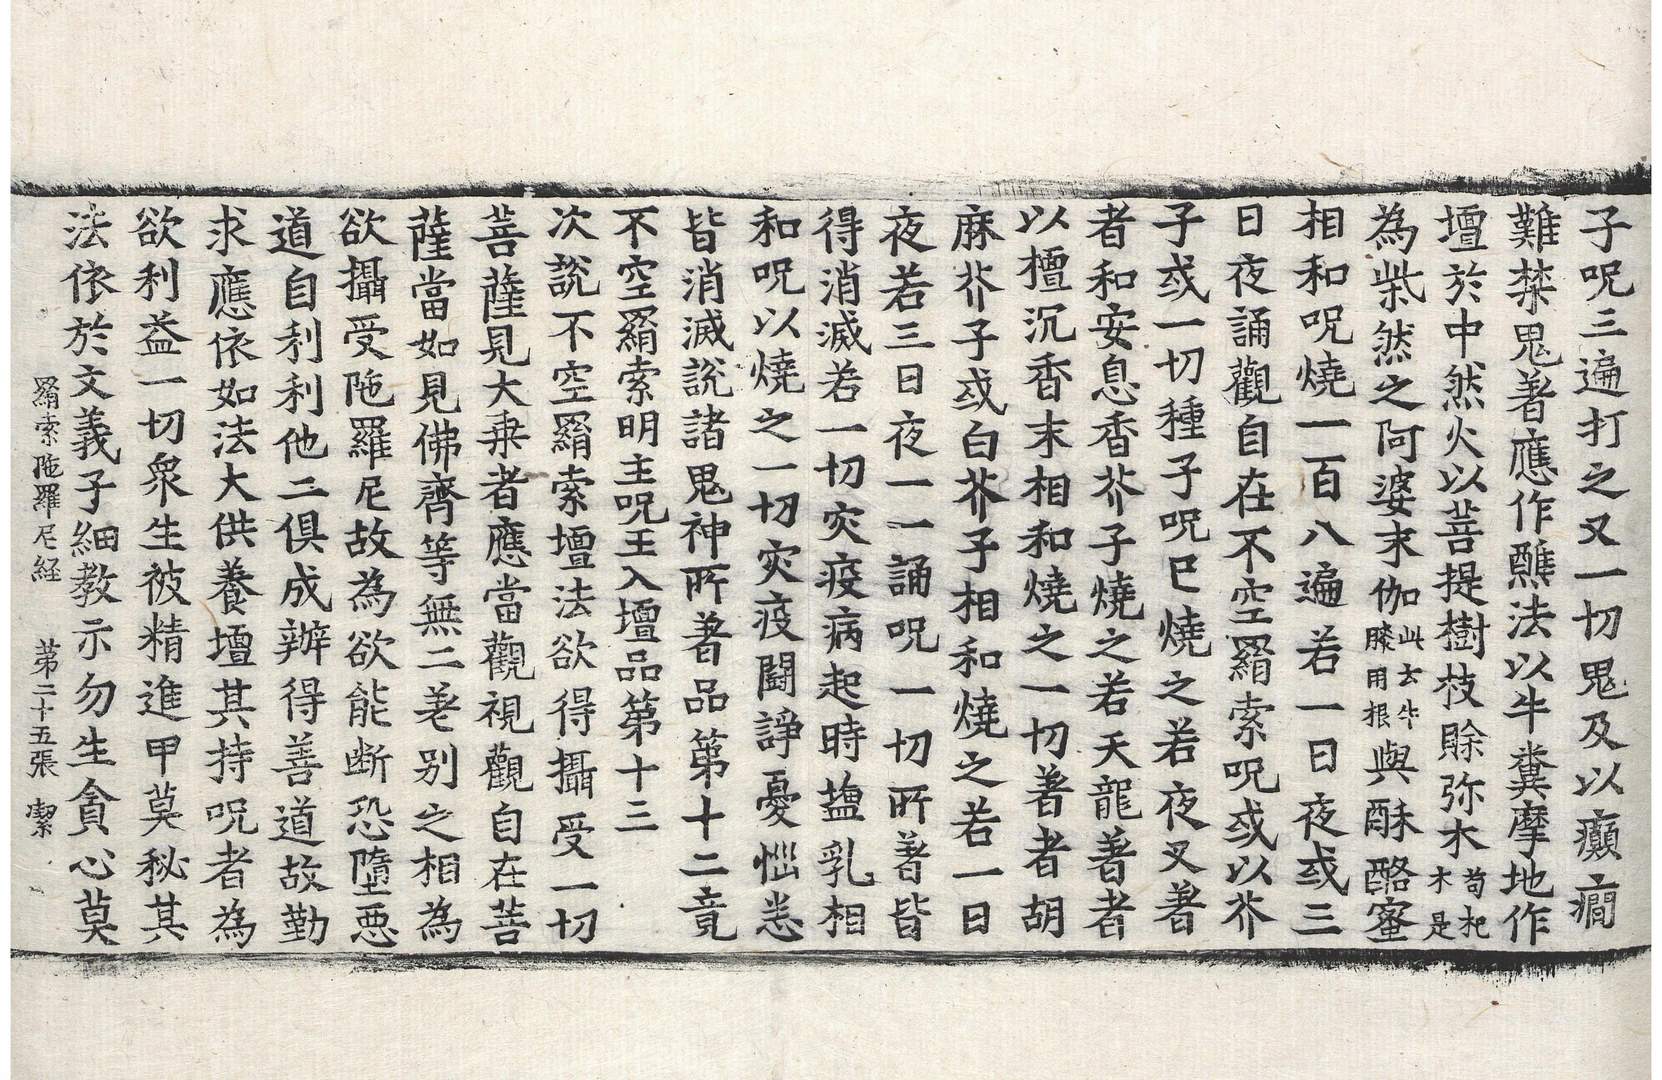 子呪三遍打之又一切鬼及以癲癇
難禁鬼著應作醮法以牛糞摩地作
壇於中然火以菩提樹枝賖弥木苟杞木是
為柴然之阿婆末伽此去牛膝用根與酥酪蜜
相和呪燒一百八遍若一日夜或三
日夜誦觀自在不空羂索呪或以芥
子或一切種子呪已燒之若夜叉著
者和安息香芥子燒之若天龍著者
以檀沉香末相和燒之一切著者胡
麻芥子或白芥子相和燒之若一日
夜若三日夜一一誦呪一切所著皆
得消滅若一切灾疫病起時塩乳相
和呪以燒之一切灾疫鬪諍憂惱悉
皆消滅說諸鬼神所著品第十二竟
不空羂索明主呪王入壇品第十三
次說不空羂索壇法欲得攝受一切
菩薩見大乘者應當觀視觀自在菩
薩當如見佛齊等無二差別之相為
欲攝受陁羅尼故為欲能断恐墮惡
道自利利他二俱成辦得善道故勤
求應依如法大供養壇其持呪者為
欲利益一切衆生被精進甲莫秘其
法依於文義子細教示勿生貪心莫
羂索陁羅尼経 第二十五張 潔